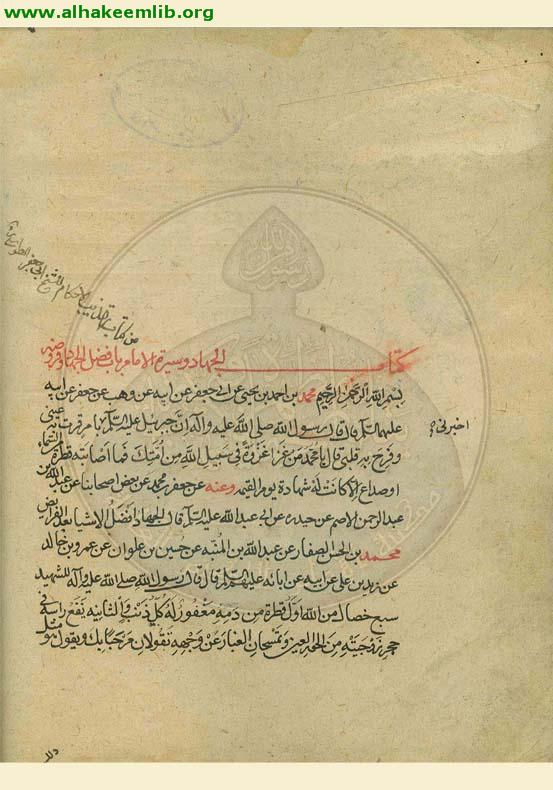 www.alhakeemlib.org
من كتاب تهذيب الاحكام للشيخ ابي جعفر الطوسي
كتاب الجهاد وسيرة الامام باب فضل الجهاد وفروضه
بسم الله الرحمن الرحيم محمد بن احمد بن يحيى عن ابي جعفر عن ابيه عن وهب عن جعفر عن ابيه
عليهما السلم قال قال رسول الله صلى الله عليه واله ان جبرئيل عليه السلم اخبرني بامر قرت به عيني
وفرح به قلبي قال يا محمد من غزا غزوة في سبيل الله من امتك فما اصابته قطرة من السماء
او صداع الا كانت له شهادة يوم القيمة وعنه عن جعفر بن محمد عن بعض اصحابنا عن عبد الله بن
عبد الرحمن الاصم عن حيدره عن ابي عبد الله عليه السلم قال الجهاد افضل الاشياء بعد الفرايض
محمد بن الحسن الصفار عن عبد الله بن المنبه عن حسين بن علوان عن عمرو بن خالد
عن زيد بن علي عن ابيه عن ابائه عليهم السلم قال قال رسول الله صلى الله عليه واله للشهيد
سبع خصال من الله اول قطرة من دمه مغفور له كل ذنب والثانيه يقع راسه في
حجر زوجتيه من الحور العين وتمسحان الغبار عن وجهه تقولان مرحبا بك ويقول هو مثل